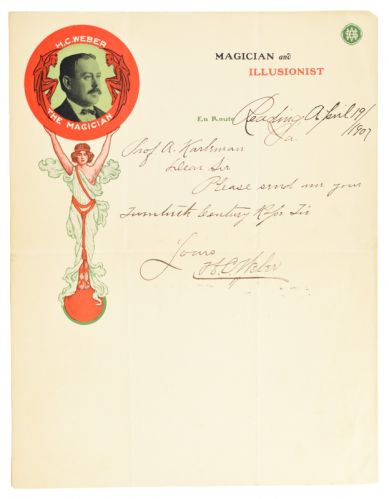 H.C. WEBER
THE MAGICIAN
MAGICIAN and
ILLUSIONIST
En Route Reading April 19/
Pa. 1907
Prof A.
Dear Sir
Please send me your
Twentieth Century Rope Tie
Yours
H.C. Weber